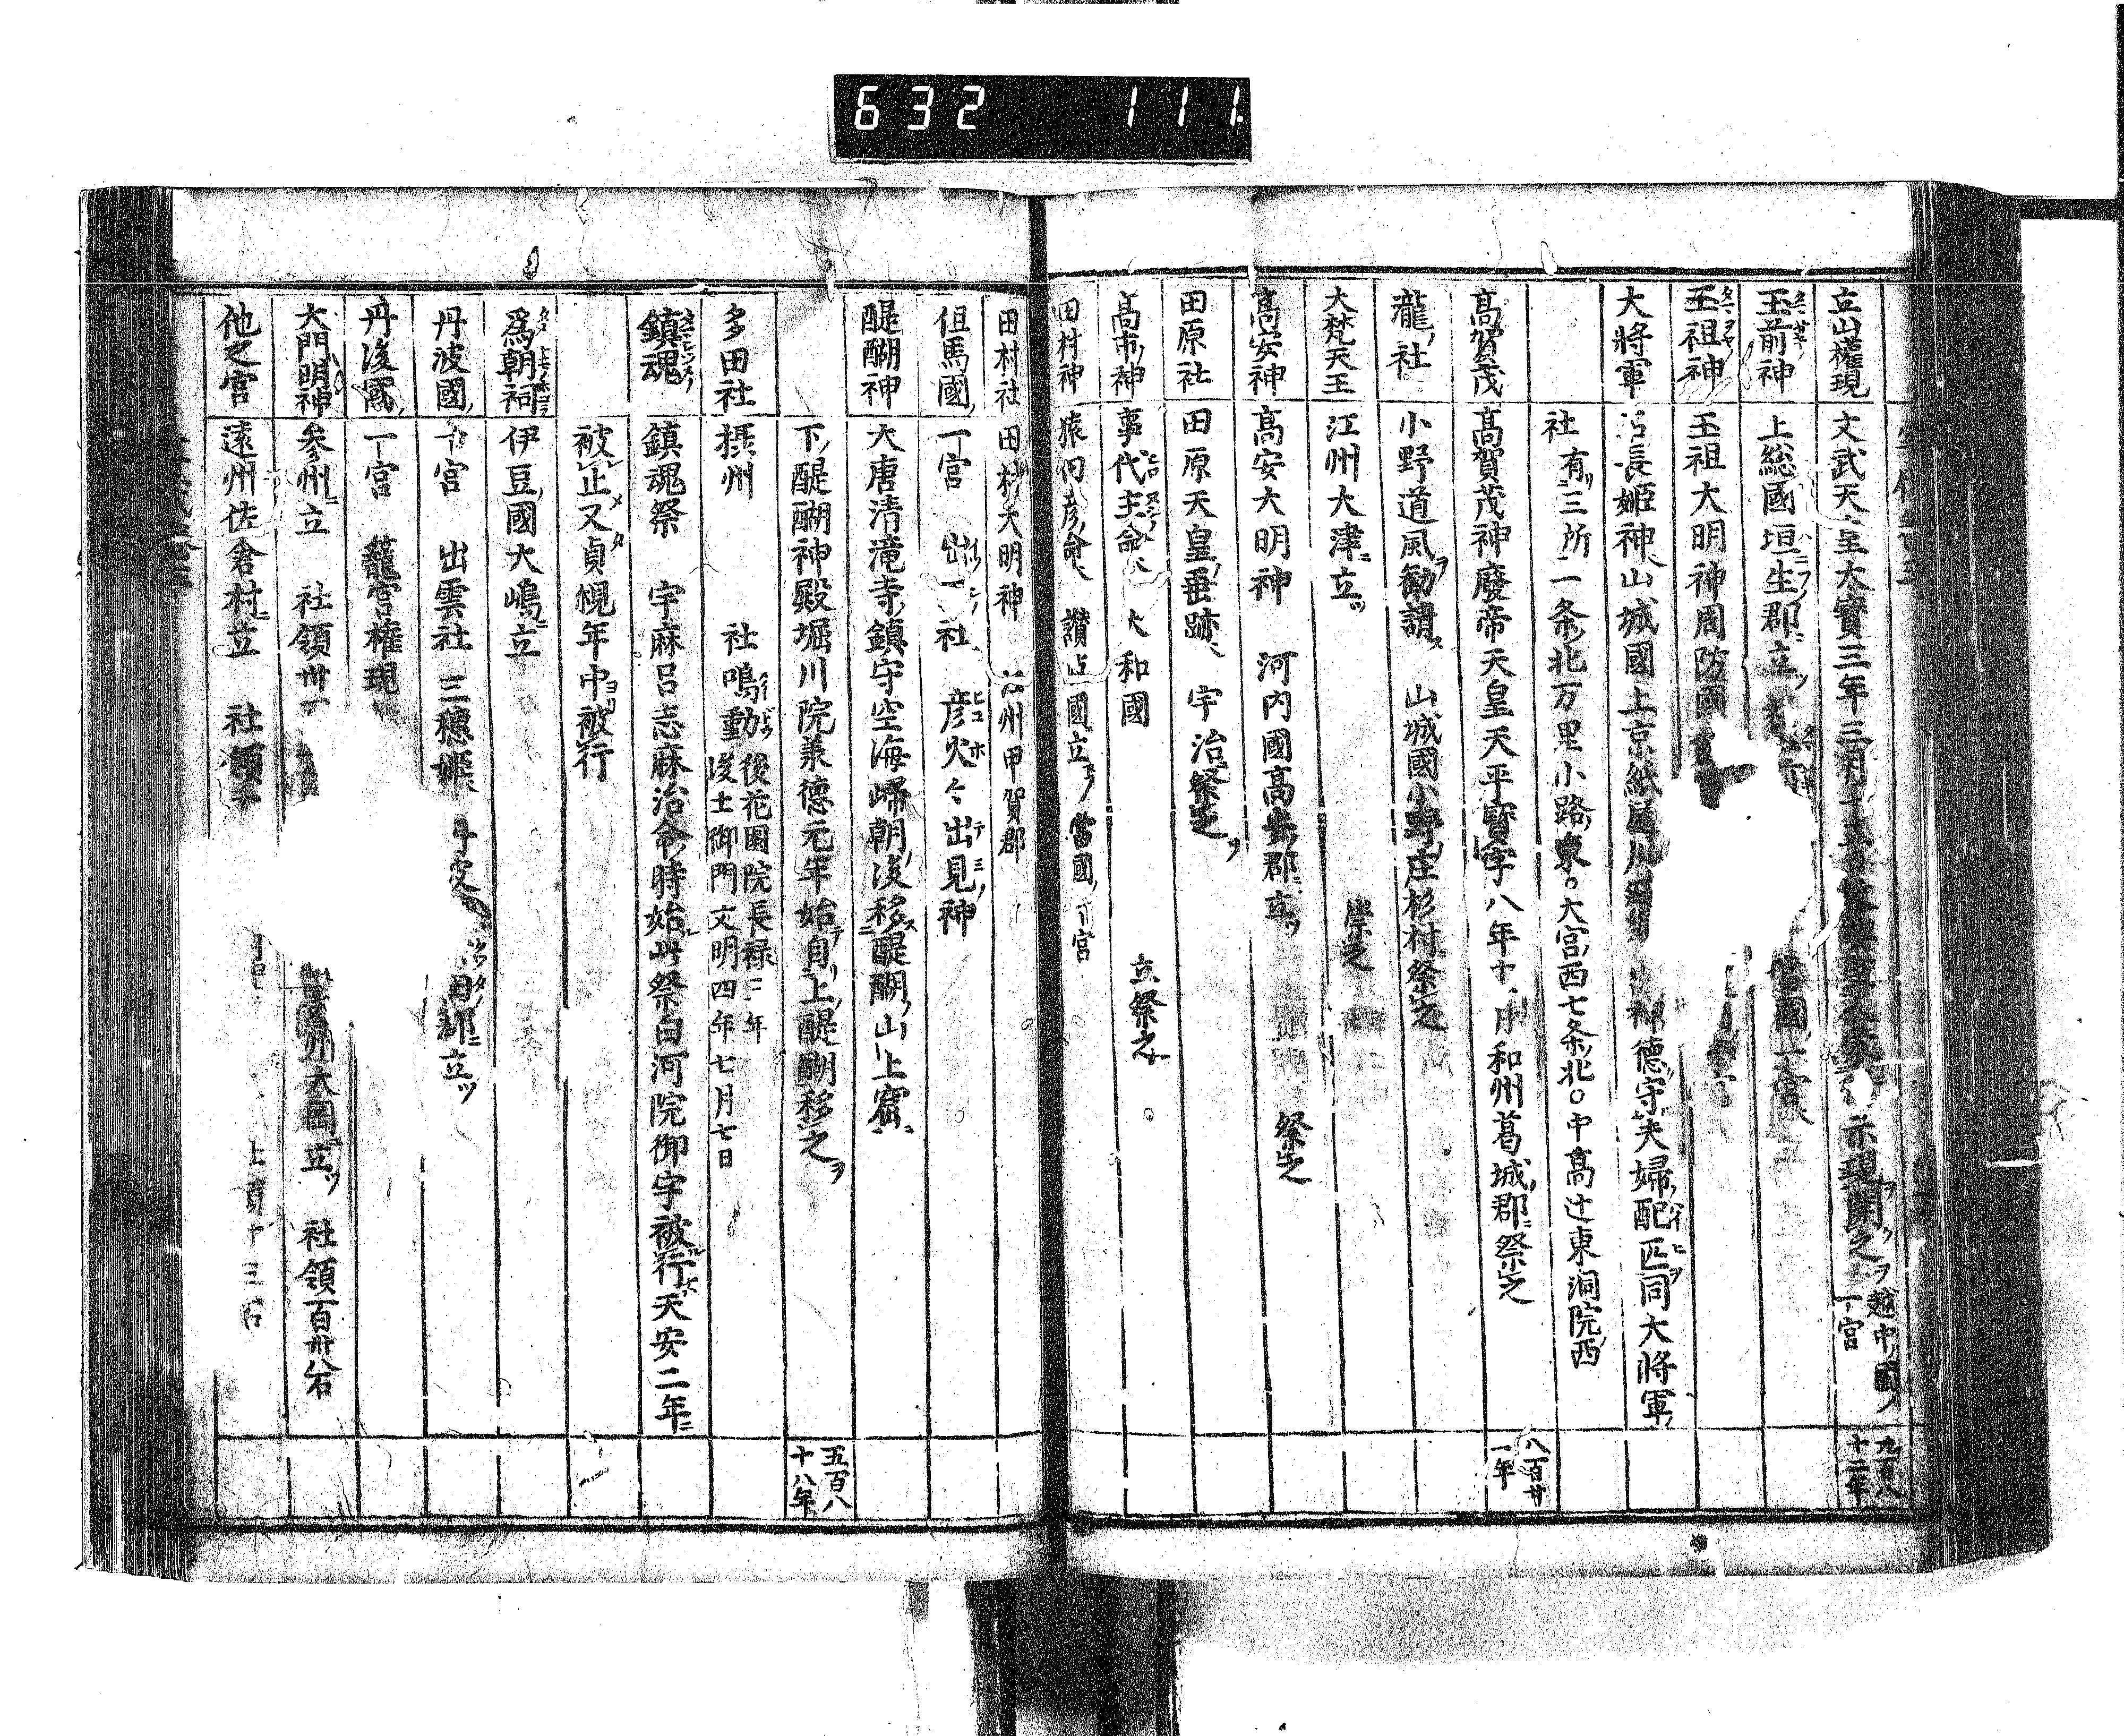 632 111
立山權現 文武天皇大寶三年三月十五日 示現開之 越中國一宮 九百八十二年
玉前神 上総國垣生郡立 國一宮
玉祖神 玉祖大明神周防國
大將軍 長姬神山城國上京紙屋川 神德守夫婦配匹同大將軍
社有三所一条北万里小路東。大宮西七条北。中高辻東洞院西
高賀茂 高賀茂神廢帝天皇天平寶字八年十一月和州葛城郡祭之 八百廿一年
瀧社 小野道風勧請 山城國小野庄杉村祭之
大梵天王 江州大津立 崇之
高安神 高安大明神 河内國高安郡立 祭之
田原社 田原天皇垂跡 宇治祭之
高市神 事代主命 大和國 立祭之
田村神 猿田彦命 讃岐國立 當國一宮
田村社 田村大明神 江州甲賀郡
但馬國 一宮 出石社 彦火々出見神
醍醐神 大唐清滝寺鎮守空海歸朝後移醍醐山上窟
下醍醐神殿堀川院兼德元年始自上醍醐移之 五百八十八年
多田社 摂州 社鳴動 後花園院長禄三年 後土御門文明四年七月七日
鎮魂 鎮魂祭 宇麻呂志麻治命時始此祭白河院御宇被行天安二年
被止又貞觀年中被行
爲朝祠 伊豆國大嶋立
丹波國 一宮 出雲社 三穗姬 丹波 田郡立
丹後國 一宮 籠宮權現
大門明神 参州立 社領卅 州大岡立 社領百卅八石
他之宮 遠州佐倉村立 社領十 十三石